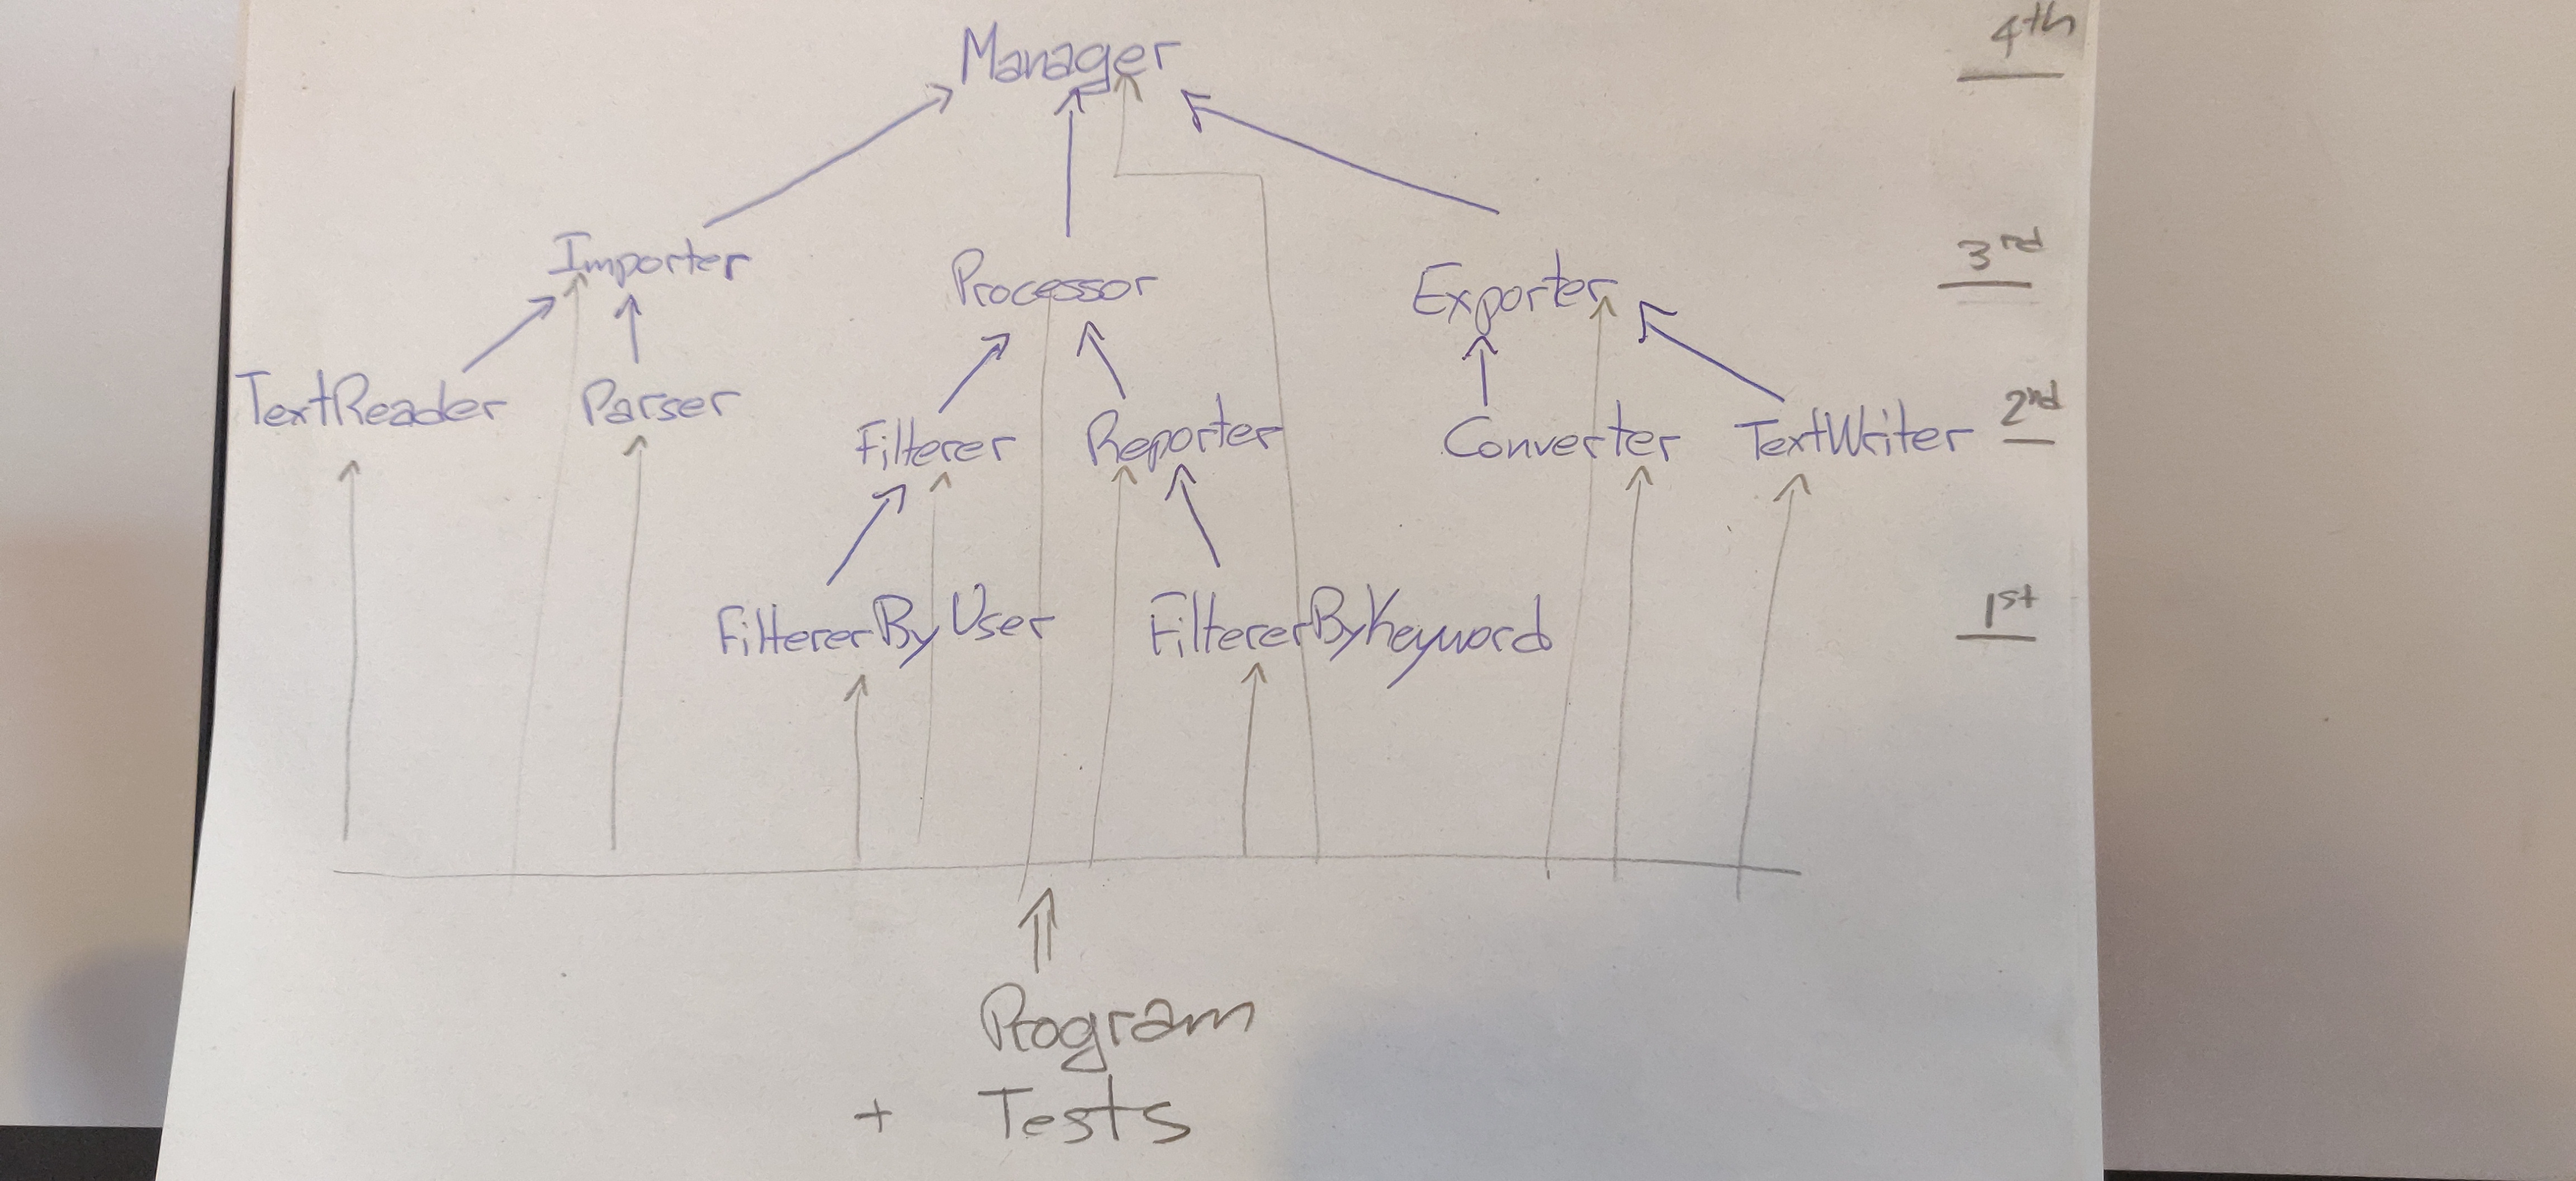 Manager
4th
Importer
Processor
Exporter
3rd
TextReader
Parser
Filterer
Reporter
Converter
TextWriter
2nd
FiltererByUser
FiltererByKeyword
1st
Program
+ Tests